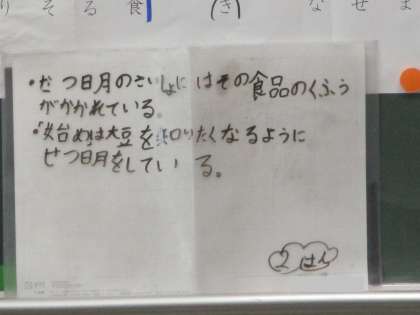 ・せつ明のさいしょにはその食品のくふう
がかかれている。
・始めは大豆を知りたくなるように
せつ明をしている。
2はん